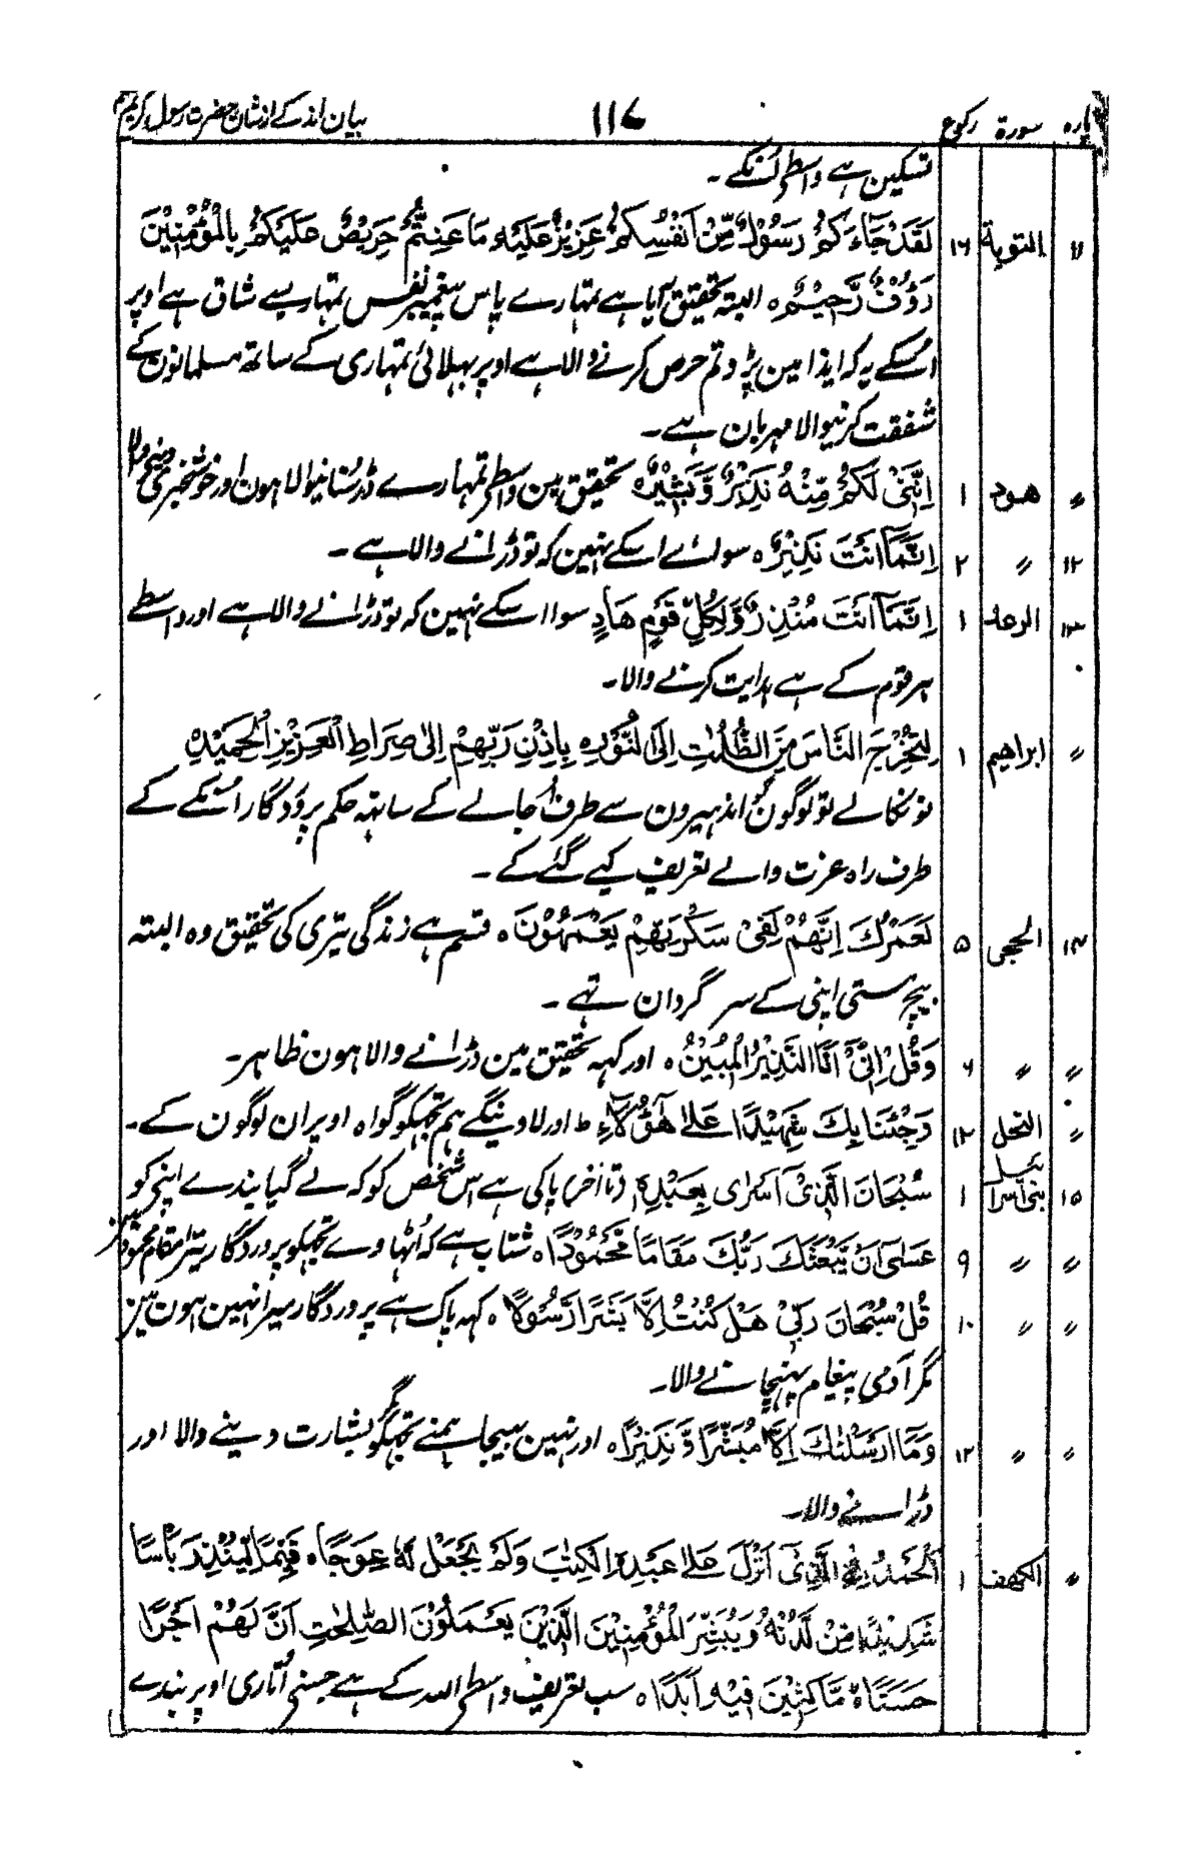 پارہ سورۃ رکوع ۱۱۷ بیان اذکے از شان حضرت رسول کریم
تسکین ہے واسطے انکے ۔
۱۱ التوبة ۱۶ لَقَدْ جَآءَكُمْ رَسُوْلٌ مِّنْ اَنْفُسِكُمْ عَزِيْزٌ عَلَيْهِ مَا عَنِتُّمْ حَرِيْصٌ عَلَيْكُمْ بِالْمُؤْمِنِيْنَ
رَؤُفٌ رَّحِيْمٌ ہ البتہ تحقیق آیا ہے تمہارے پاس پیغمبر نفس تمہارے سے شاق ہے اوپر
اسکے یہ کہ ایذا مین پڑو تم حرص کرنے والا ہے اوپر بہلائی تمہاری کے ساتھ مسلمانون کے
شفقت کرنیوالا مہربان ہے ۔
〃 هود ۱ اِنَّنِیْ لَكُمْ مِّنْهُ نَذِيْرٌ وَّبَشِيْرٌ ہ تحقیق مین واسطے تمہارے ڈر سُنانیوالا ہون اور خوشخبری دینے والا
۱۲ 〃 ۲ اِنَّمَآ اَنْتَ نَذِيْرٌ ہ سوائے اسکے نہین کہ تو ڈرانے والا ہے ۔
۱۳ الرعد ۱ اِنَّمَآ اَنْتَ مُنْذِرٌ وَّلِكُلِّ قَوْمٍ هَادٍ سوا اسکے نہین کہ تو ڈرانے والا ہے اور واسطے
ہر قوم کے ہے ہدایت کرنے والا ۔
〃 ابراهيم ۱ لِتُخْرِجَ النَّاسَ مِنَ الظُّلُمٰتِ اِلَى النُّوْرِ ہ بِاِذْنِ رَبِّهِمْ اِلٰى صِرَاطِ الْعَزِيْزِ الْحَمِيْدِ
تو نکالے تو لوگون کو اندہیرون سے طرف اُجالے کے ساتہہ حکم پروردگار اُنکے کے
طرف راہ عزت والے تعریف کیے گئے کے ۔
۱۴ الحجر ۵ لَعَمْرُكَ اِنَّهُمْ لَفِیْ سَكْرَتِهِمْ يَعْمَهُوْنَ ہ قسم ہے زندگی تیری کی تحقیق وہ البتہ
بیچ مستی اپنی کے سرگردان تہے ۔
〃 〃 ۶ وَقُلْ اِنِّیْٓ اَنَا النَّذِيْرُ الْمُبِيْنُ ہ اور کہہ تحقیق مین ڈرانے والا ہون ظاہر ۔
〃 النحل ۱۲ وَجِئْنَا بِكَ شَهِيْدًا عَلٰى هٰٓؤُلَآءِ ط اور لاوینگے ہم تجہکو گواہ اوپر ان لوگون کے ۔
۱۵ بنی اسرائیل ۱ سُبْحَانَ الَّذِیْٓ اَسْرٰى بِعَبْدِهٖ (تا آخر) پاکی ہے اس شخص کو کہ لے گیا بندے اپنے کو
〃 〃 ۹ عَسٰٓى اَنْ يَّبْعَثَكَ رَبُّكَ مَقَامًا مَّحْمُوْدًا ہ شتاب ہے کہ اُٹہاوے تجہکو پروردگار تیرا مقام محمود مین
〃 〃 ۱۰ قُلْ سُبْحَانَ رَبِّیْ هَلْ كُنْتُ اِلَّا بَشَرًا رَّسُوْلًا ہ کہہ پاک ہے پروردگار میرا نہین ہون مین
مگر آدمی پیغام پہنچانے والا ۔
〃 〃 ۱۲ وَمَآ اَرْسَلْنٰكَ اِلَّا مُبَشِّرًا وَّنَذِيْرًا ہ اور نہین بہیجا ہمنے تجہکو مگر بشارت دینے والا اور
ڈرانے والا ۔
〃 الكهف ۱ اَلْحَمْدُ لِلّٰهِ الَّذِیْٓ اَنْزَلَ عَلٰى عَبْدِهِ الْكِتٰبَ وَلَمْ يَجْعَلْ لَّهٗ عِوَجًا ہ قَيِّمًا لِّيُنْذِرَ بَاْسًا
شَدِيْدًا مِّنْ لَّدُنْهُ وَيُبَشِّرَ الْمُؤْمِنِيْنَ الَّذِيْنَ يَعْمَلُوْنَ الصّٰلِحٰتِ اَنَّ لَهُمْ اَجْرًا
حَسَنًا ہ مَّاكِثِيْنَ فِيْهِ اَبَدًا ہ سب تعریف واسطے اللہ کے ہے جسنے اُتاری اوپر بندے